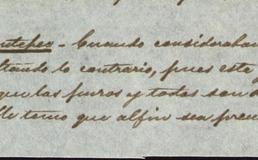 utepec - Cuando considerabar
tando lo contrario, pues este
que las puros y todas son d
le temo que al fin sea pren